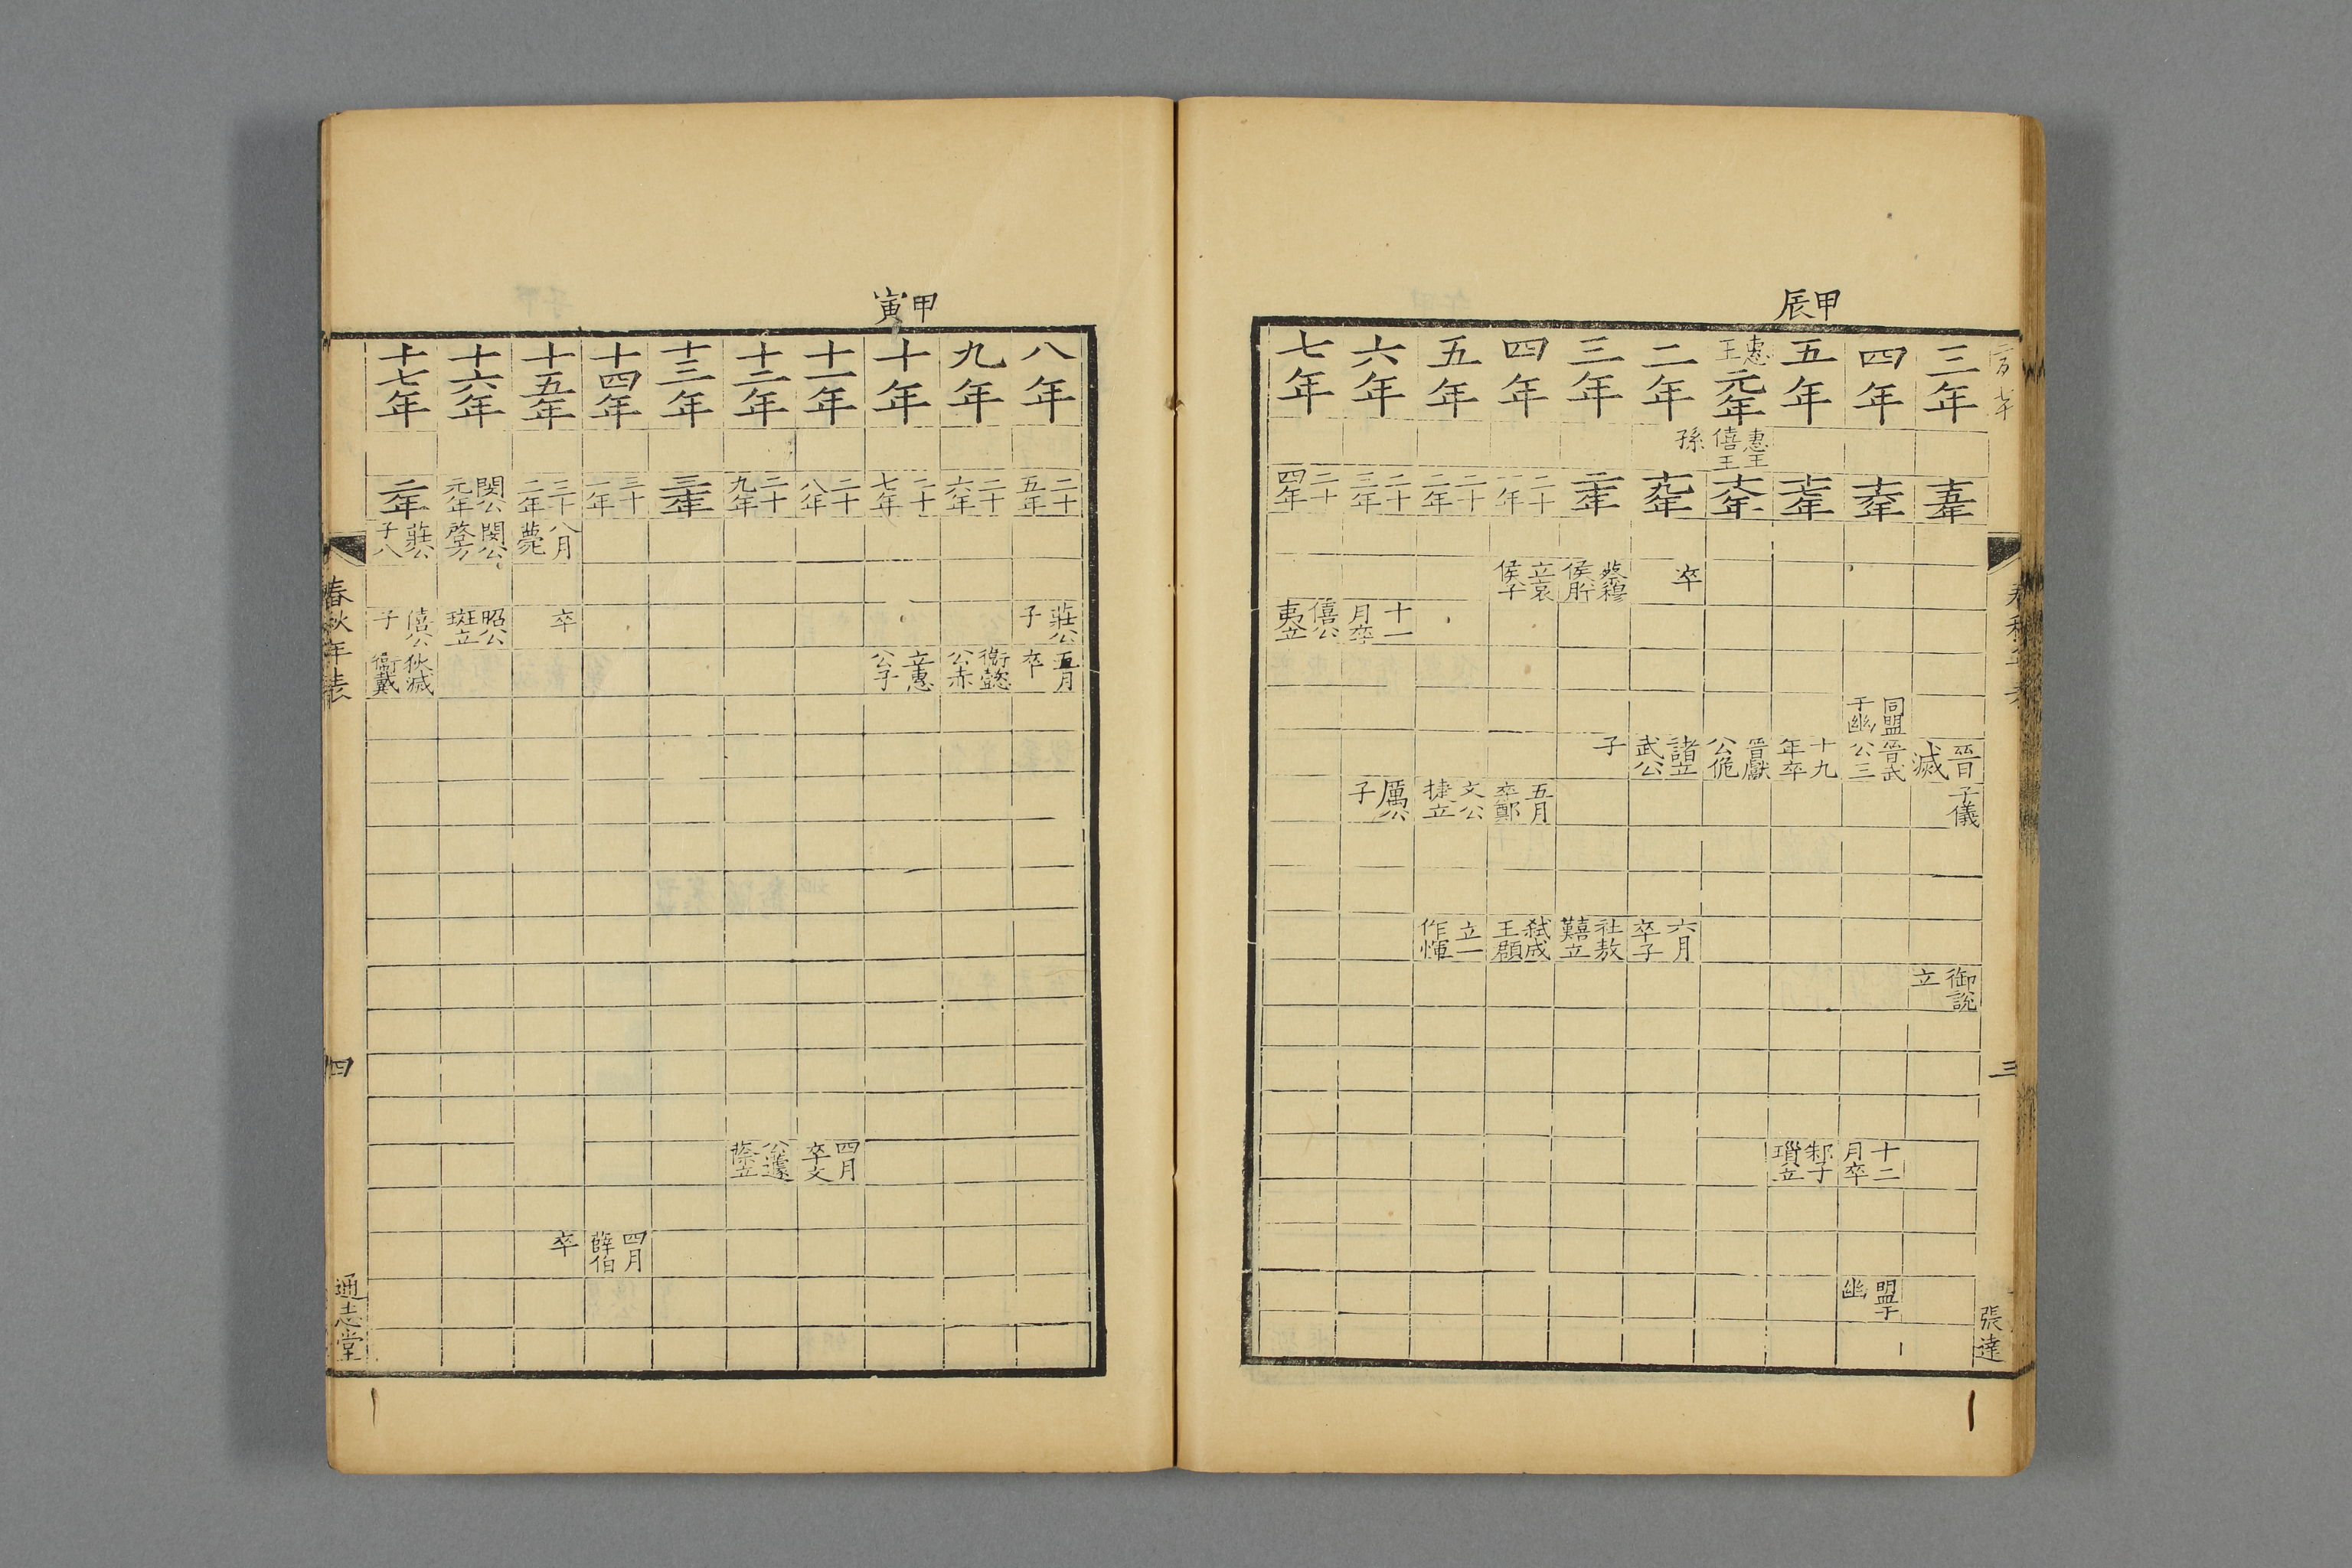 甲辰
三年
四年
五年
惠王元年
二年
三年
四年
五年
六年
七年
惠王僖王
孫
十五年
十六年
十七年
十八年
十九年
二十年
二十一年
二十二年
二十三年
二十四年
卒
蔡穆侯肸
立哀侯子
十一月卒
僖公夷立
同盟于幽
晉滅
晉武公三
十九年卒
晉獻公佹
諸立武公
子
子儀
五月卒鄭
文公捷立
厲公子
六月卒子
社敖囏立
弑成王頵
立一作惲
御說立
十二月卒
邾子瑣立
盟于幽
三
張達
甲寅
八年
九年
十年
十一年
十二年
十三年
十四年
十五年
十六年
十七年
二十五年
二十六年
二十七年
二十八年
二十九年
三十年
三十一年
三十二年
閔公元年
二年
八月薨
閔公啓方
莊公子八
莊公子
卒
昭公班立
僖公子
五月卒
衞懿公赤
立惠公子
狄滅衞戴
四月卒文
公蘧蒢立
四月薛伯
卒
春秋年表
四
通志堂